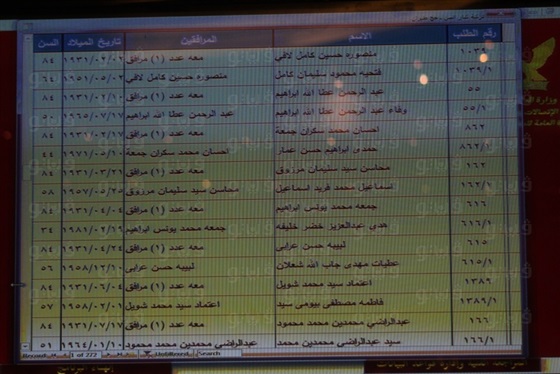 رقم الطلب الاسم المرافقين تاريخ الميلاد السن
١٠٣٩ منصوره حسين كامل لافي معه عدد (١) مرافق ١٩٣١/٠٢/٠٦ ٨٤
١٠٣٩/١ فتحيه محمود سليمان كامل منصوره حسين كامل لافي ١٩٥١/٠٥/٠٢ ٦٤
٥٥ عبد الرحمن عطا الله ابراهيم معه عدد (١) مرافق ٨٤
٥٥/١ وفاء عبد الرحمن عطا الله ابراهيم عبد الرحمن عطا الله ابراهيم ١٩٦٥/٠٧/١٧ ٥٠
٨٦٢ احسان محمد سكران جمعة معه عدد (١) مرافق ١٩٣١/٠٢/١٧ ٨٤
٨٦٢/١ حمدى ابراهيم حسن عمار احسان محمد سكران جمعة ٤٤
١٦٢ محاسن سيد سليمان مرزوق معه عدد (١) مرافق ١٩٣١/٠٣/٢١ ٨٤
١٦٢/١ اسماعيل محمد فريد اسماعيل محاسن سيد سليمان مرزوق ١٩٥٧/٠٥/٢٥ ٥٨
٦١٦ جمعه محمد يونس ابراهيم معه عدد (١) مرافق ١٩٣١/٠٤/٠٤ ٨٤
٦١٦/١ هدي عبدالعزيز خضر خليفه جمعه محمد يونس ابراهيم ٣٤
٦١٥ لبيبه حسن عرابى معه عدد (١) مرافق ١٩٣١/٠٤/٢٤ ٨٤
٦١٥/١ عطيات مهدى جاب الله شعلان لبيبه حسن عرابى ١٩٥٨/١٢/١٠ ٥٦
١٣٨٩ اعتماد سيد محمد شويل معه عدد (١) مرافق ١٩٣١/٠٦/٠٤ ٨٤
١٣٨٩/١ فاطمه مصطفى بيومى سيد اعتماد سيد محمد شويل ١٩٥٨/٠٢/٠١ ٥٧
١٦٦ عبدالراضي محمدين محمد محمود معه عدد (١) مرافق ١٩٣١/٠٧/١٧ ٨٤
١٦٦/١ سيد عبدالراضي محمدين محمد عبدالراضي محمدين محمد محمود ١٩٦٤/٠١/١٠ ٥١
Record: 1 of 272 Unfiltered Search